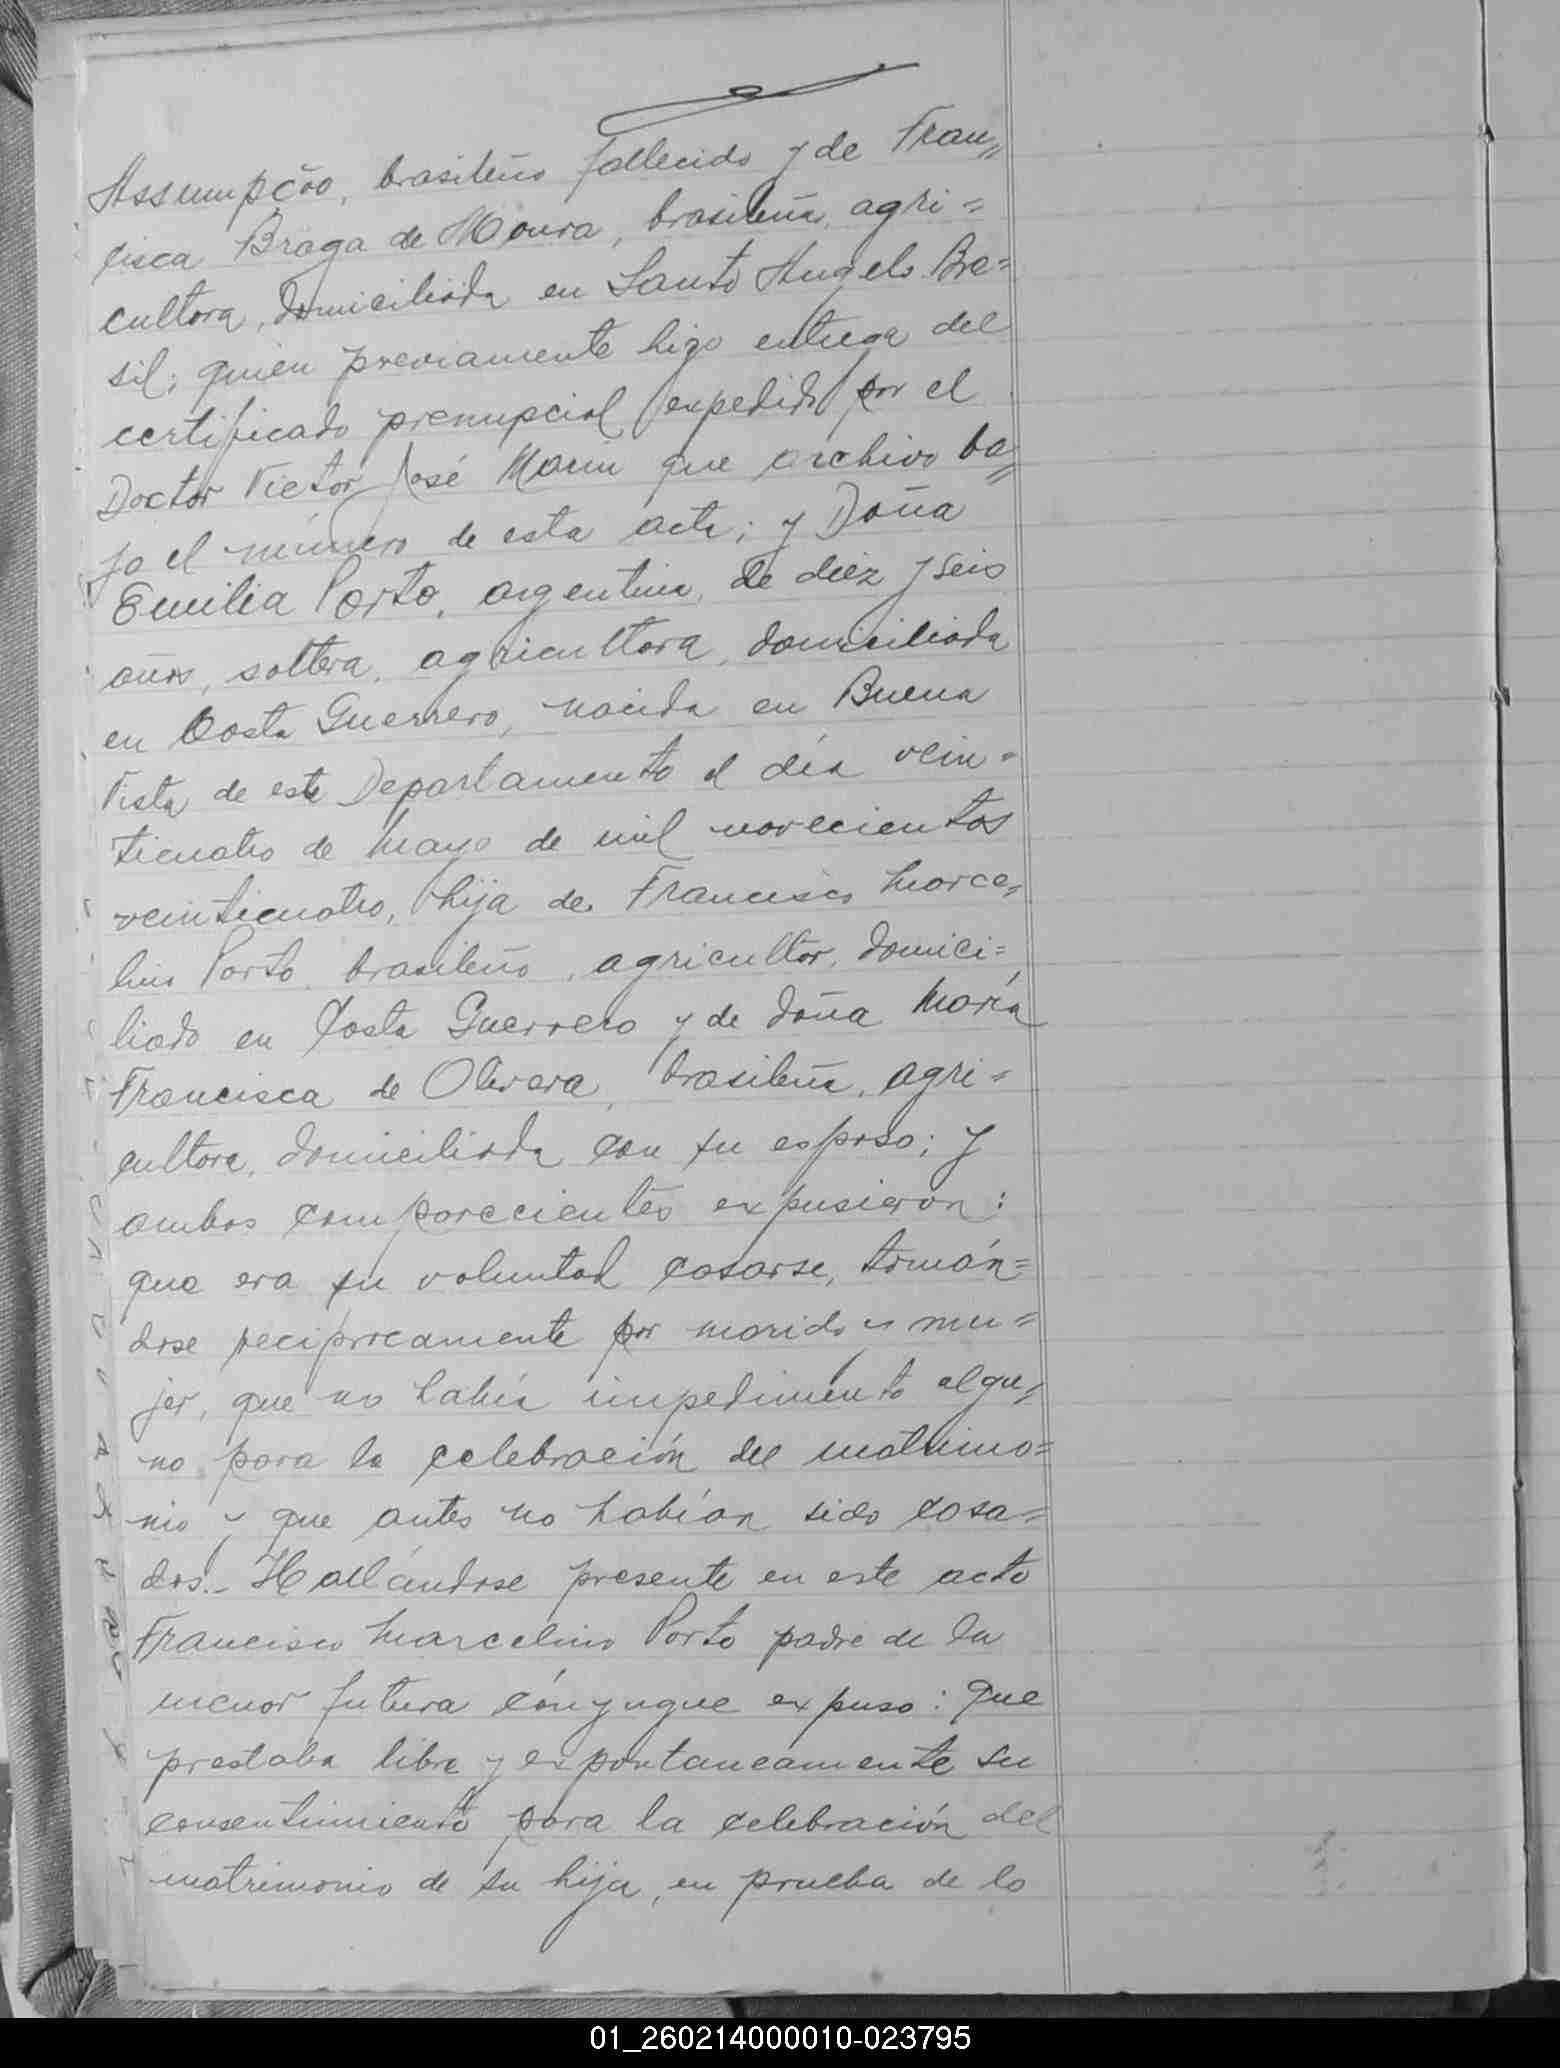 Assumpção, brasileño fallecido y de Fran„
cisca Braga de Moura, brasileña, agri=
cultora, domiciliada en Santo Angelo Bra=
sil; quien previamente hizo entrega del
certificado prenupcial expedido por el
Doctor Victor José Marin que archivo ba„
jo el número de esta acta; y Doña
Emilia Porto, argentina, de diez y seis
años, soltera, agricultora, domiciliada
en Costa Guerrero, nacida en Buena
Vista de este Departamento el día vein=
ticuatro de Mayo de mil novecientos
veinticuatro, hija de Francisco Marce„
lino Porto, brasileño, agricultor, domici=
liado en Costa Guerrero y de doña María
Francisca de Olivera, brasileña, agri=
cultora, domiciliada con su esposo; y
ambos comparecientes expusieron:
que era su voluntad casarse, tomán=
dose recíprocamente por marido y mu=
jer, que no había impedimento algu„
no para la celebración del matrimo=
nio y que antes no habían sido casa=
dos.- Hallándose presente en este acto
Francisco Marcelino Porto padre de la
menor futura cónyugue expuso: que
prestaba libre y expontaneamente su
consentimiento para la celebración del
matrimonio de su hija, en prueba de lo
01_260214000010-023795